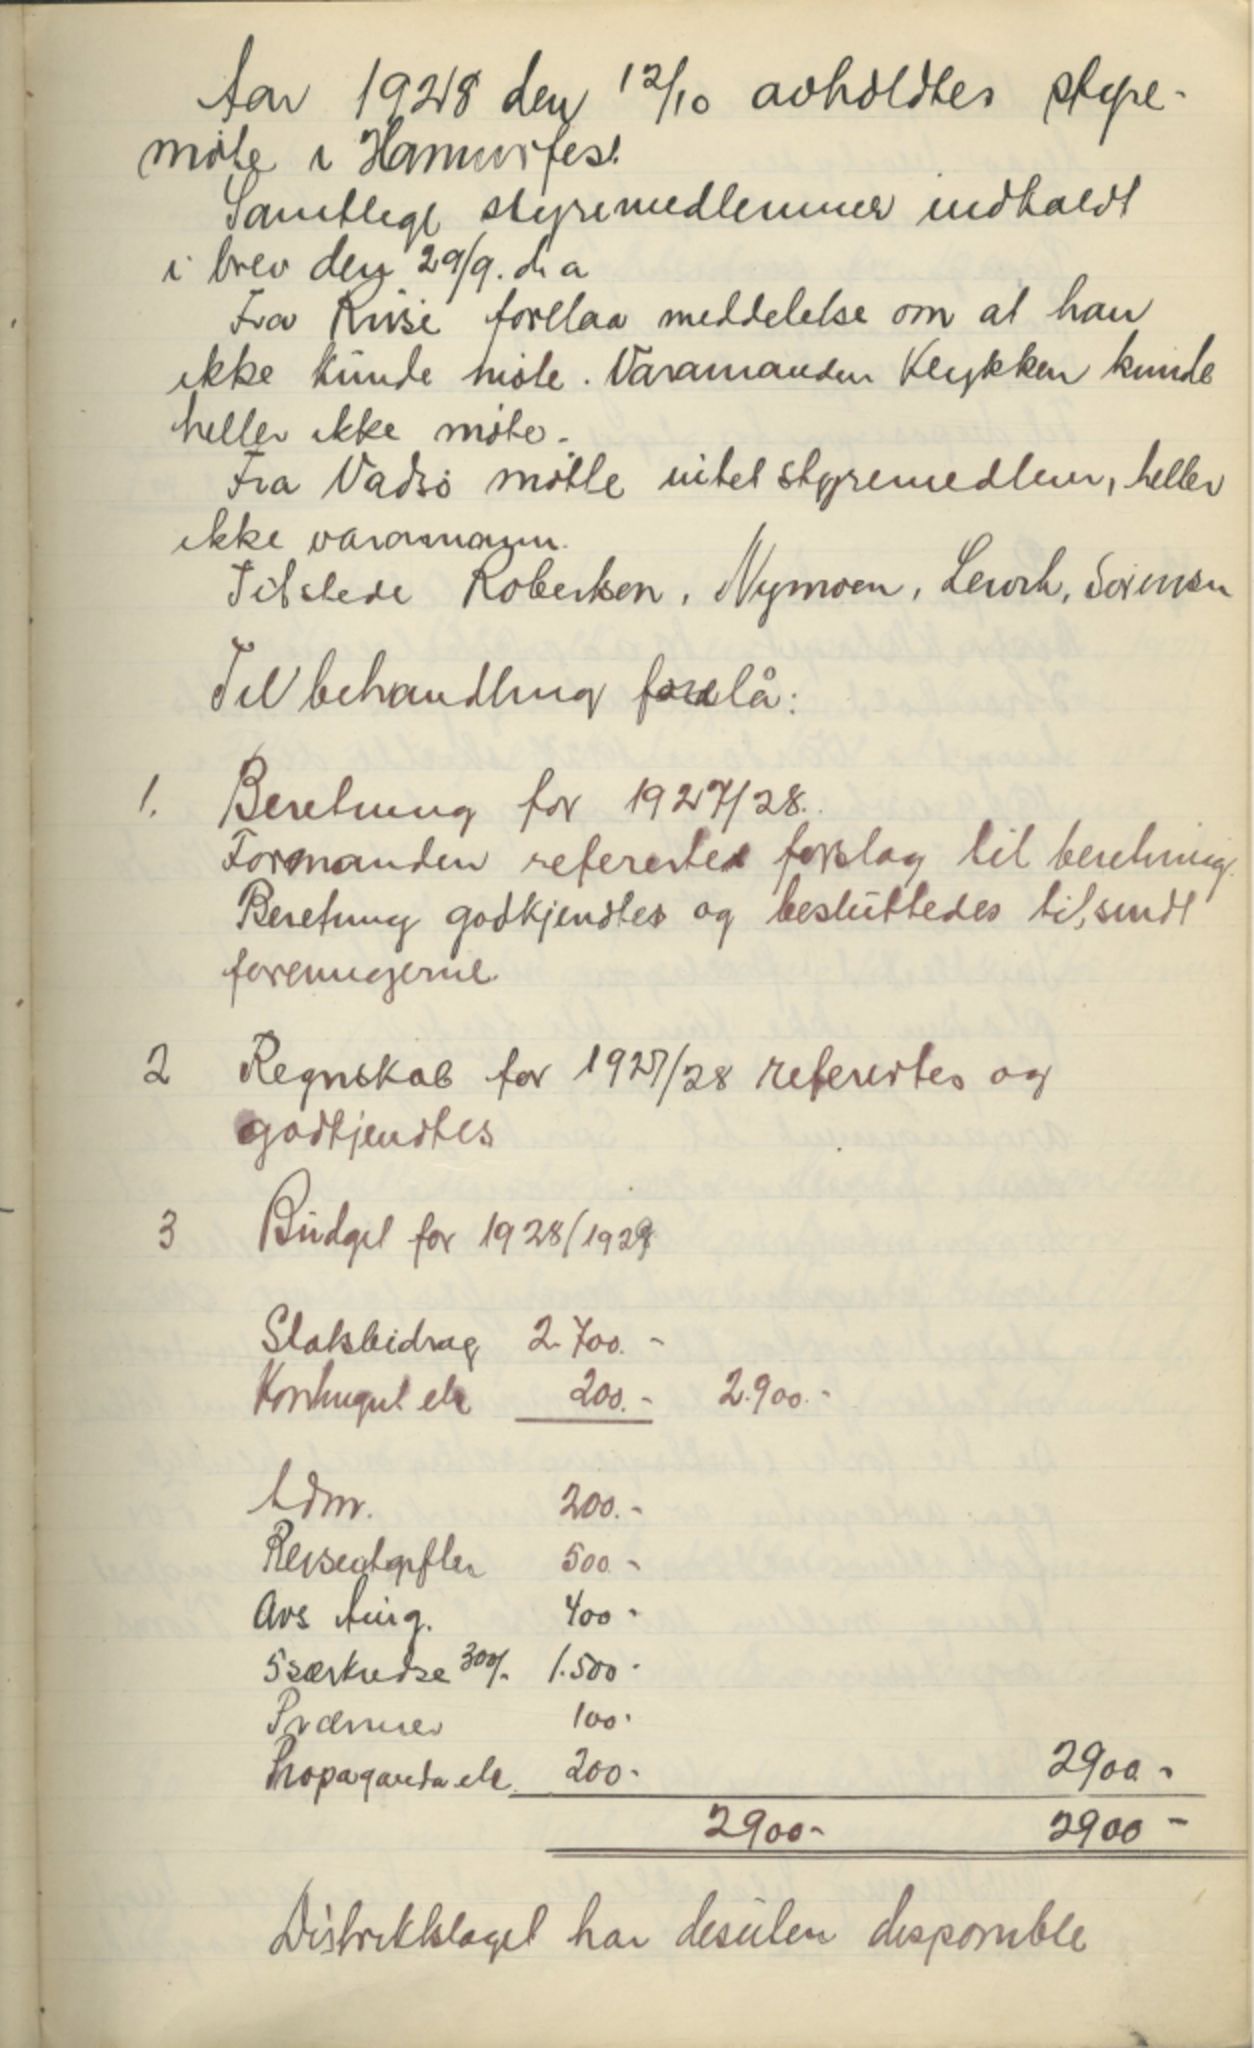 Aar 1928 den 12/10 avholdtes styre-
møte i Hammerfest.
Samtlige styremedlemmer indkaldt
i brev den 29/9. d. a
Fra Riise forelaa meddelelse om at han
ikke kunde møte. Varamanden Klykken kunde
heller ikke møte.
Fra Vadsø møtte intet styremedlem, heller
ikke varamann.
Tilstede Robertsen, Nymoen, Lerch, Sørensen
Til behandling forelå:
1. Beretning for 1927/28.
Formanden refererte forslag til beretning.
Beretning godkjendtes og besluttedes tilsendt
foreningerne
2 Regnskab for 1927/28 referertes og
godkjendtes
3 Budget for 1928/1929
Statsbidrag 2.700.-
Kontingent etc 200.- 2.900.-
Adm. 200.-
Reiseutgifter 500.-
Avs 400-
5 særkredse 300/- 1.500-
Præmier 100-
Propaganda etc. 200- 2900.-
2900- 2900-
Distriktslaget har desuten disponible